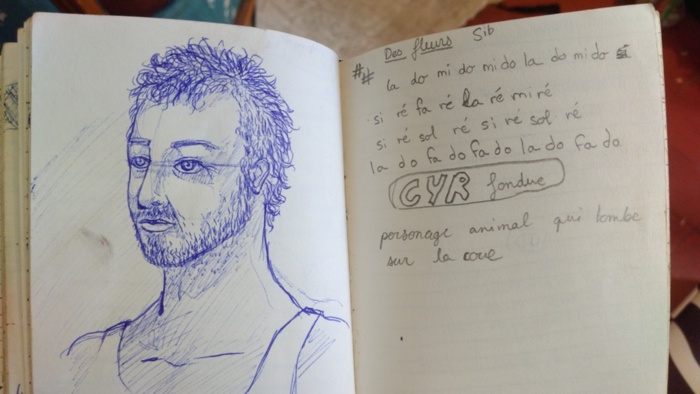 Des fleurs Sib
## la do mi do mi do la do mi do si
si ré fa ré la ré mi ré
si ré sol ré si ré sol ré
la do fa do fa do la do fa do
CYR fondue
personage animal qui tombe
sur la